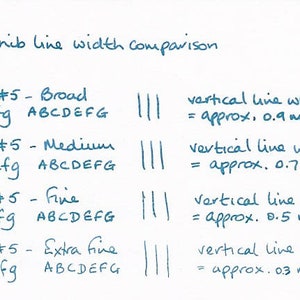 nib line width comparison
#5 - Broad
fg ABCDEFG
vertical line w
= approx. 0.9 m
#5 - Medium
fg ABCDEFG
vertical line w
= approx. 0.7
#5 - Fine
fg ABCDEFG
vertical line
= approx. 0.5 m
#5 - Extra Fine
fg ABCDEFG
vertical line
= approx. 0.3